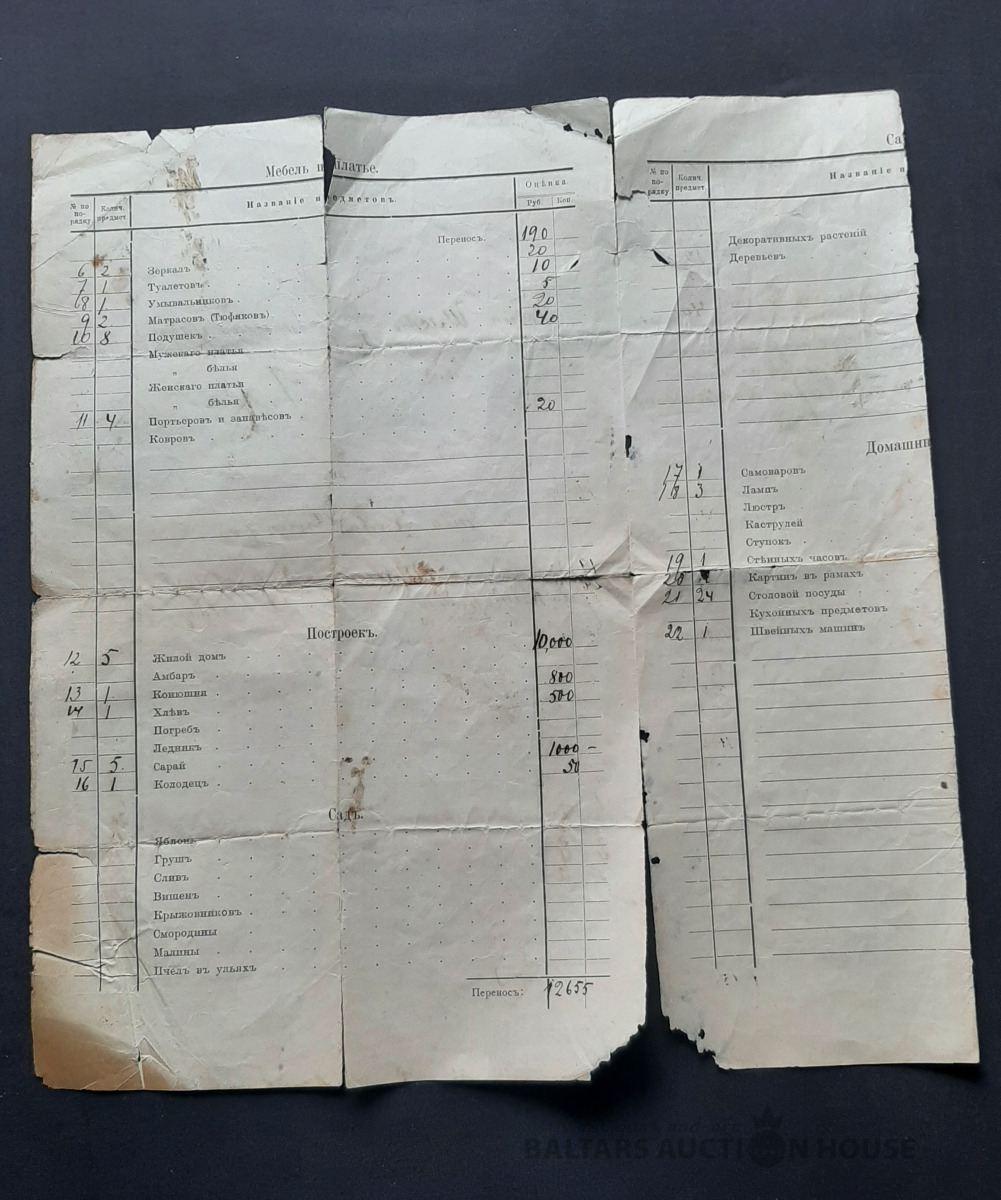 Мебель и платье.
№ по по-рядку. Колич. предмет. Названіе предметовъ. Оцѣнка. Руб. Коп.
Переносъ. 190
20
6 2 Зеркалъ 10
7 1 Туалетовъ 5
8 1 Умывальниковъ 20
9 2 Матрасовъ (Тюфяковъ) 40
10 8 Подушекъ
Мужскаго платья
„ бѣлья
Женскаго платья
„ бѣлья 20
11 4 Портьеровъ и занавѣсовъ
Ковровъ
Построекъ.
10,000
12 5 Жилой домъ
Амбаръ 800
13 1 Конюшня 500
14 1 Хлѣвъ
Погребъ
Ледникъ 1000 –
15 5 Сарай 50
16 1 Колодецъ
Садъ.
Яблонь
Грушъ
Сливъ
Вишенъ
Крыжовниковъ
Смородины
Малины
Пчелъ въ ульяхъ
Переносъ: 12655
Са
№ по по-рядку. Колич. предмет. Названіе п
Декоративныхъ растеній
Деревьевъ
Домашн
17 1 Самоваровъ
18 3 Лампъ
Люстръ
Каструлей
Ступокъ
19 1 Стѣнныхъ часовъ
20 Картинъ въ рамахъ
21 24 Столовой посуды
Кухонныхъ предметовъ
22 1 Швейныхъ машинъ
BALTARS AUCTION HOUSE